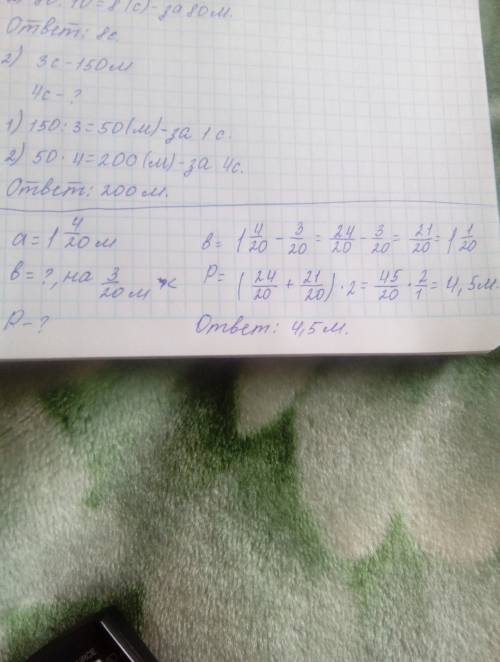 80:10=8(с)-за 80м.
Ответ: 8с.
2) 3с-150м
4с-?
1) 150:3=50(м)-за 1с.
2) 50·4=200(м)-за 4с.
Ответ: 200м.
a=1 4/20 м
в=?, на 3/20 м <
P-?
в=1 4/20 - 3/20 = 24/20 - 3/20 = 21/20 = 1 1/20
P=(24/20 + 21/20)·2= 45/20 · 2/1 = 4,5м.
Ответ: 4,5м.